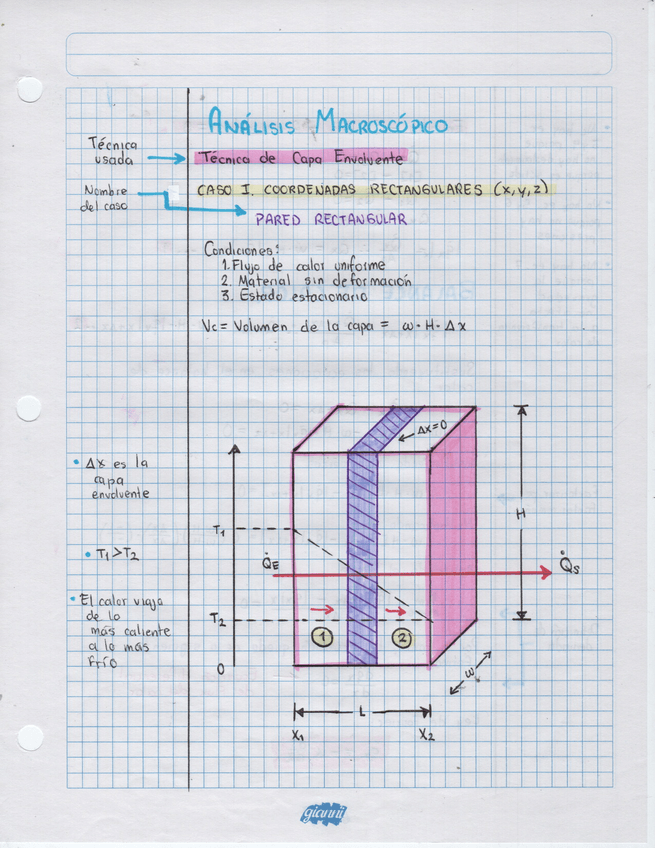 ANÁLISIS MACROSCÓPICO
Técnica
usada
Técnica de Capa Envolvente
Nombre
del caso
CASO I. COORDENADAS RECTANGULARES (x,y,z)
PARED RECTANGULAR
Condiciones:
1. Flujo de calor uniforme
2. Material sin deformación
3. Estado estacionario
Vc = Volumen de la capa = ω · H · Δx
Δx=0
• Δx es la
capa
envolvente
H
T1
• T1>T2
Q̇E
Q̇s
• El calor viaja
de lo
más caliente
a lo más
frío
T2
1
2
0
ω
L
X1
X2
gianni